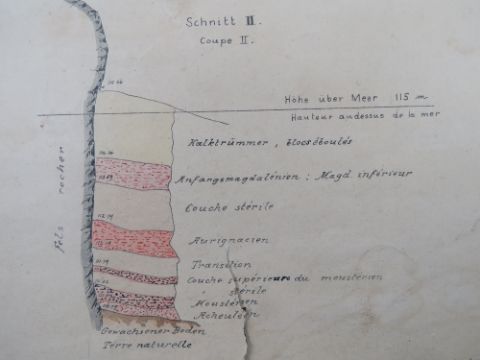 Schnitt II.
Coupe II.
Höhe über Meer 115 m
Hauteur audessus de la mer
Kalktrümmer, blocs éboulés
Anfangsmagdalénien : Magd. inférieur
Fels rocher
Couche stérile
Aurignacien
Transition
Couche supérieure du moustérien
stérile
Moustérien
Acheuléen
Gewachsener Boden
Terre naturelle